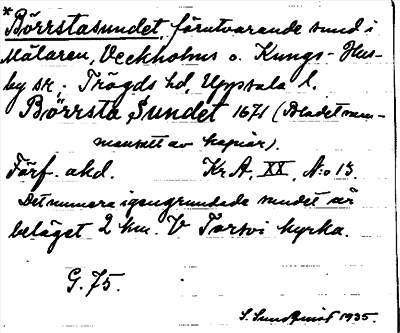 *Börrstasundet, förutvarande sund i
Mälaren, Veckholms o. Kungs-Hus-
by skr, Trögds hd, Uppsala l.
Börrsta Sundet 1671 (Bladet sam-
mansatt av kapior).
Förf. akd. Kr A, XX, N:o 13.
Det numera igengrundade sundet är
beläget 2 km. V Torsvi kyrka.
G. 75.
S. Sundquist 1935.